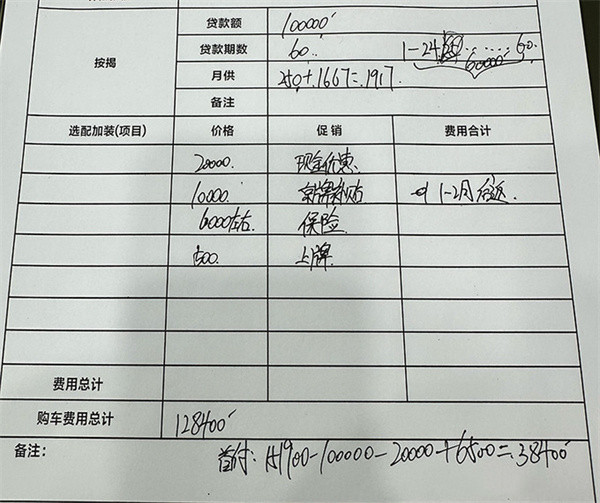 按揭
贷款额 100000
贷款期数 60. 1-24 ...... 60.
60000
月供 250+1667=1917.
备注
选配加装(项目) 价格 促销 费用合计
20000. 现金优惠.
10000. 京牌补贴 1-2月后返.
6000左右 保险.
500. 上牌.
费用总计
购车费用总计 128400
备注: 首付: 151900-100000-20000+6500=38400